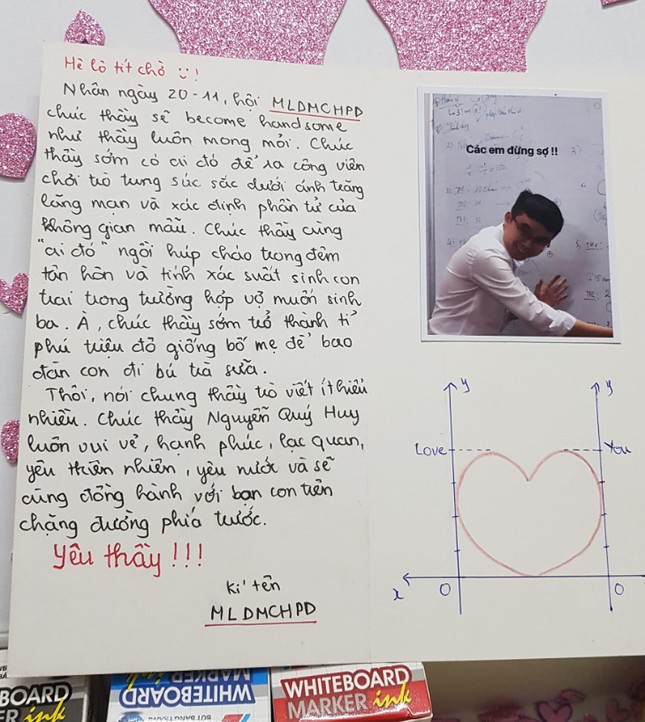 Hê lô tít chờ !
Nhân ngày 20-11, hội MLDMCHPD
chúc thầy sẽ become handsome
như thầy luôn mong mỏi. Chúc
thầy sớm có ai đó để ra công viên
chơi trò tung súc sắc dưới ánh trăng
lãng mạn và xác định phần tử của
không gian mẫu. Chúc thầy cùng
"ai đó" ngồi húp cháo trong đêm
tân hôn và tính xác suất sinh con
trai trong trường hợp vợ muốn sinh
ba. À, chúc thầy sớm trở thành tỉ
phú triệu đô giống bố mẹ để bao
đàn con đi bú trà sữa.
Thôi, nói chung thầy trò viết ít hiểu
nhiều. Chúc thầy Nguyễn Quý Huy
luôn vui vẻ, hạnh phúc, lạc quan,
yêu thiên nhiên, yêu nước và sẽ
cùng đồng hành với bạn con trên
chặng đường phía trước.
Yêu thầy !!!
Kí tên
MLDMCHPD
Các em đừng sợ !!
y
y
Love
You
x
O
O
BOARD
ER ink
WHITEBOARD
MARKER ink
WHITEBOARD
MARKER ink